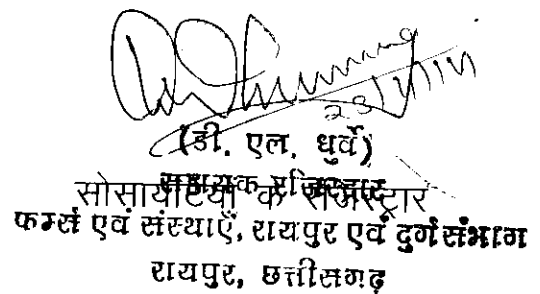 (डी. एल. धुर्वे)
सहायक रजिस्ट्रार
सोसायटियों के रजिस्ट्रार
फर्म्स एवं संस्थाएँ, रायपुर एवं दुर्ग संभाग
रायपुर, छत्तीसगढ़